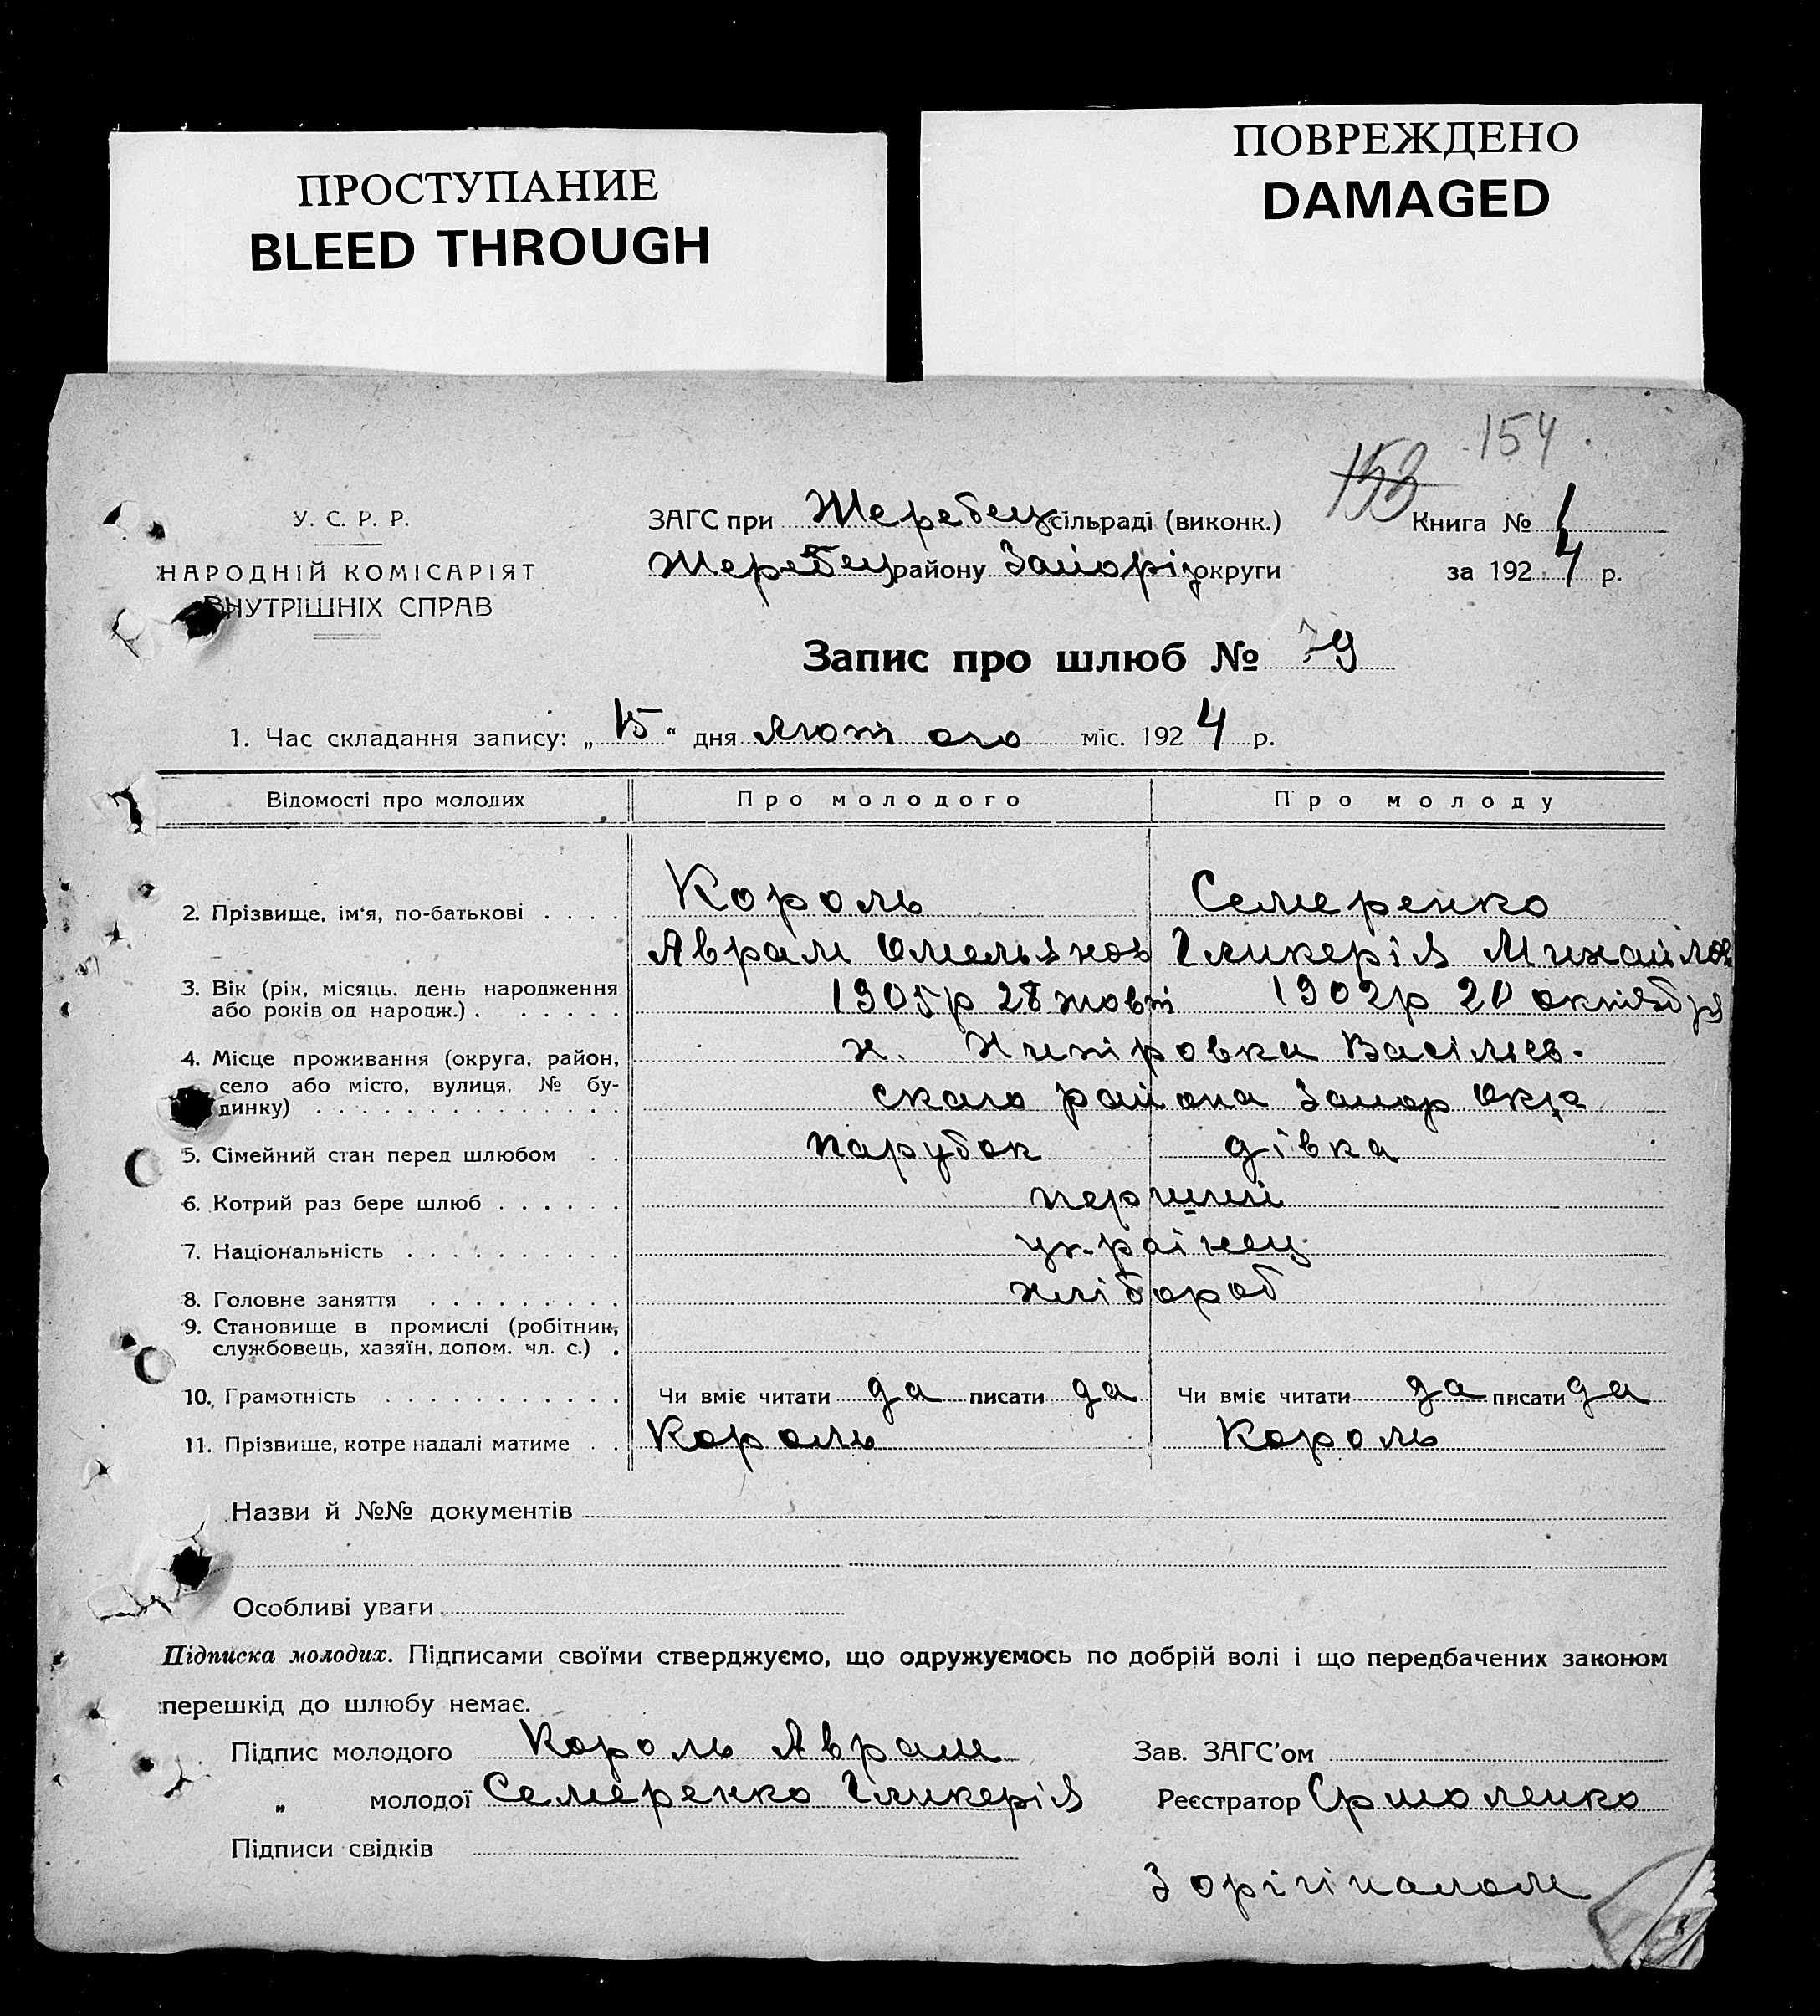 ПРОСТУПАНИЕ
BLEED THROUGH
ПОВРЕЖДЕНО
DAMAGED
154
153
У. С. Р. Р.
НАРОДНІЙ КОМІСАРІЯТ
ВНУТРІШНІХ СПРАВ
ЗАГС при Жеребец сільраді (виконк.)
Жеребец району Запоріз округи
Книга № 1
за 1924 р.
Запис про шлюб № 79
1. Час складання запису: „15“ дня лютого міс. 1924 р.
Відомості про молодих
Про молодого
Про молоду
2. Прізвище, ім'я, по-батькові . . . .
Король
Семеренко
Аврам Омельянов
Гликерія Михайлов
3. Вік (рік, місяць, день народження
або років од народж.) . . . . . .
1905р 28 жовт
1902р 20 октября
4. Місце проживання (округа, район,
село або місто, вулиця, № бу-
динку) . . . . . . . . . . . . . .
х. Василев.
скаго района Запор Окр
5. Сімейний стан перед шлюбом . .
парубок
дівка
6. Котрий раз бере шлюб . . . . . .
перший
7. Національність . . . . . . . . . .
українец
8. Головне заняття . . . . . . . . .
хлібороб
9. Становище в промислі (робітник,
службовець, хазяїн, допом. чл. с.) .
10. Грамотність . . . . . . . . . . .
Чи вміє читати да писати да
Чи вміє читати да писати да
11. Прізвище, котре надалі матиме . .
Король
Король
Назви й №№ документів
Особливі уваги
Підписка молодих. Підписами своїми стверджуємо, що одружуємось по добрій волі і що передбачених законом
перешкід до шлюбу немає.
Підпис молодого Король Аврам
Зав. ЗАГС'ом
„ молодої Семеренко Гликерія
Реєстратор Єрмоленко
Підписи свідків
З орігіналом